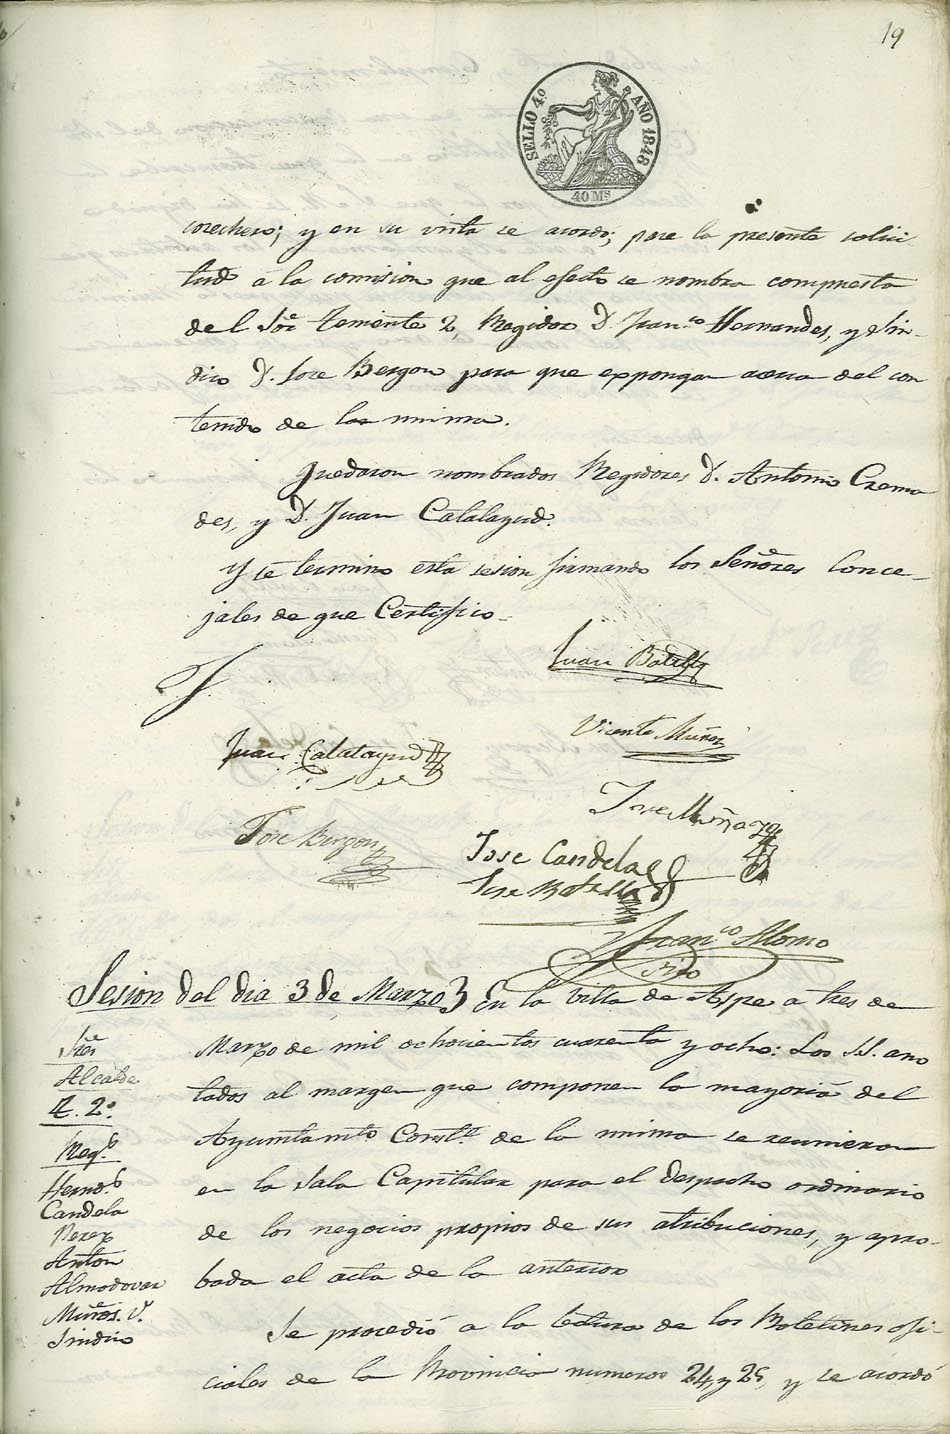 19
SELLO 4º AÑO 1848
40 Ms
cosechero; y en su vista se acordo; pase la presente solici
tud a la comision que al efecto se nombra compuesta
del Sor Teniente 2, Regidor D. Franco Hernandes, y Sin-
dico D. Jose Bergon para que expongan acerca del con
tenido de la misma.
Quedaron nombrados Regidores D. Antonio Crema
des, y D. Juan Calatayud.
Y se termino esta sesion firmando los Señores Conce-
jales de que Certifico.
Juan Botella
Vicente Muñoz
Juan Calatayud
Jose Muñoz
Jose Bergon
Jose Candela
Jose Botella
Franco Alonso
Srio
Sesion del dia 3 de Marzo} En la Villa de Aspe a tres de
Marzo de mil ochocientos cuarenta y ocho: Los SS. ano
tados al margen que componen la mayoria del
Ayuntamto Constl de la misma se reunieron
en la Sala Capitular para el despacho ordinario
de los negocios propios de sus atribuciones, y apro-
bada el acta de la anterior
Se procedió a la lectura de los Boletines ofi-
ciales de la Provincia numeros 24, y 25, y se acordó
Sres
Alcalde
T. 2º.
Regs
Hernds
Candela
Perez
Anton
Almodovar
Muños. V.
Sindico